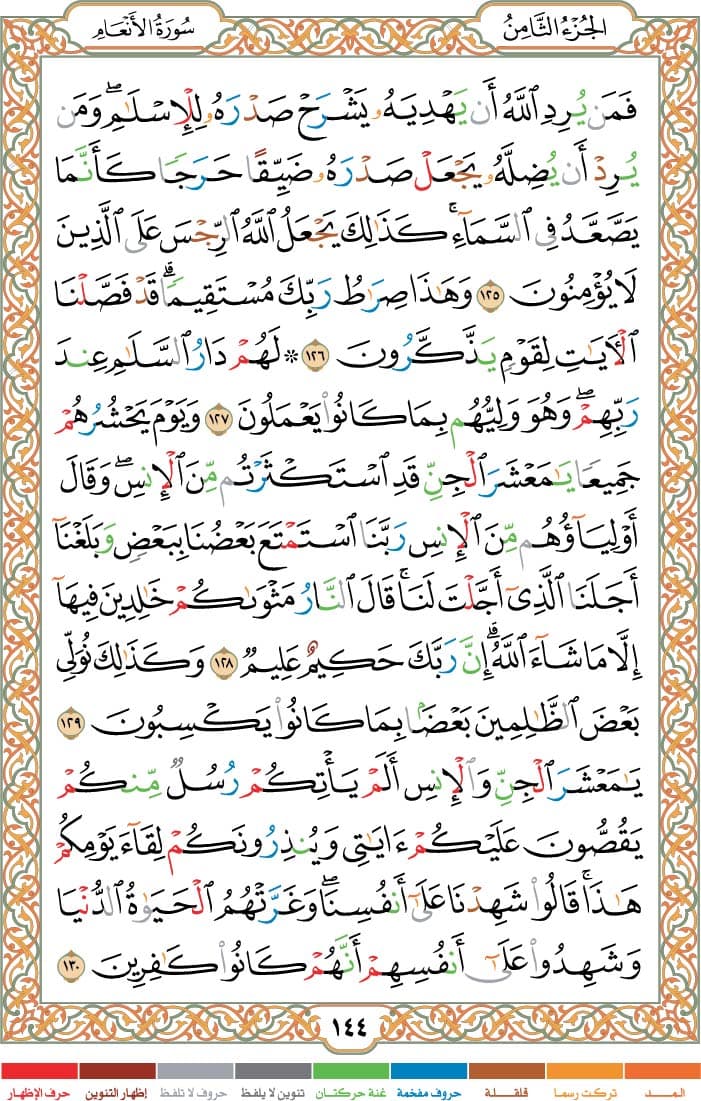 الجُزْءُ الثَّامِنُ
سُورَةُ الأَنْعَامِ
فَمَن يُرِدِ ٱللَّهُ أَن يَهْدِيَهُۥ يَشْرَحْ صَدْرَهُۥ لِلْإِسْلَٰمِۖ وَمَن
يُرِدْ أَن يُضِلَّهُۥ يَجْعَلْ صَدْرَهُۥ ضَيِّقًا حَرَجًا كَأَنَّمَا
يَصَّعَّدُ فِى ٱلسَّمَآءِۚ كَذَٰلِكَ يَجْعَلُ ٱللَّهُ ٱلرِّجْسَ عَلَى ٱلَّذِينَ
لَا يُؤْمِنُونَ ١٢٥ وَهَٰذَا صِرَٰطُ رَبِّكَ مُسْتَقِيمًاۗ قَدْ فَصَّلْنَا
ٱلْءَايَٰتِ لِقَوْمٍ يَذَّكَّرُونَ ١٢٦ ۞ لَهُمْ دَارُ ٱلسَّلَٰمِ عِندَ
رَبِّهِمْۖ وَهُوَ وَلِيُّهُم بِمَا كَانُوا۟ يَعْمَلُونَ ١٢٧ وَيَوْمَ يَحْشُرُهُمْ
جَمِيعًا يَٰمَعْشَرَ ٱلْجِنِّ قَدِ ٱسْتَكْثَرْتُم مِّنَ ٱلْإِنسِۖ وَقَالَ
أَوْلِيَآؤُهُم مِّنَ ٱلْإِنسِ رَبَّنَا ٱسْتَمْتَعَ بَعْضُنَا بِبَعْضٍ وَبَلَغْنَآ
أَجَلَنَا ٱلَّذِىٓ أَجَّلْتَ لَنَاۚ قَالَ ٱلنَّارُ مَثْوَىٰكُمْ خَٰلِدِينَ فِيهَآ
إِلَّا مَا شَآءَ ٱللَّهُۗ إِنَّ رَبَّكَ حَكِيمٌ عَلِيمٌ ١٢٨ وَكَذَٰلِكَ نُوَلِّى
بَعْضَ ٱلظَّٰلِمِينَ بَعْضًۢا بِمَا كَانُوا۟ يَكْسِبُونَ ١٢٩
يَٰمَعْشَرَ ٱلْجِنِّ وَٱلْإِنسِ أَلَمْ يَأْتِكُمْ رُسُلٌ مِّنكُمْ
يَقُصُّونَ عَلَيْكُمْ ءَايَٰتِى وَيُنذِرُونَكُمْ لِقَآءَ يَوْمِكُمْ
هَٰذَاۚ قَالُوا۟ شَهِدْنَا عَلَىٰٓ أَنفُسِنَاۖ وَغَرَّتْهُمُ ٱلْحَيَوٰةُ ٱلدُّنْيَا
وَشَهِدُوا۟ عَلَىٰٓ أَنفُسِهِمْ أَنَّهُمْ كَانُوا۟ كَٰفِرِينَ ١٣٠
١٤٤
المــد تركت رسما قلقلة حروف مفخمة غنة حركتان تنوين لا يلفظ حروف لا تلفظ إظهار التنوين حرف الإظهار